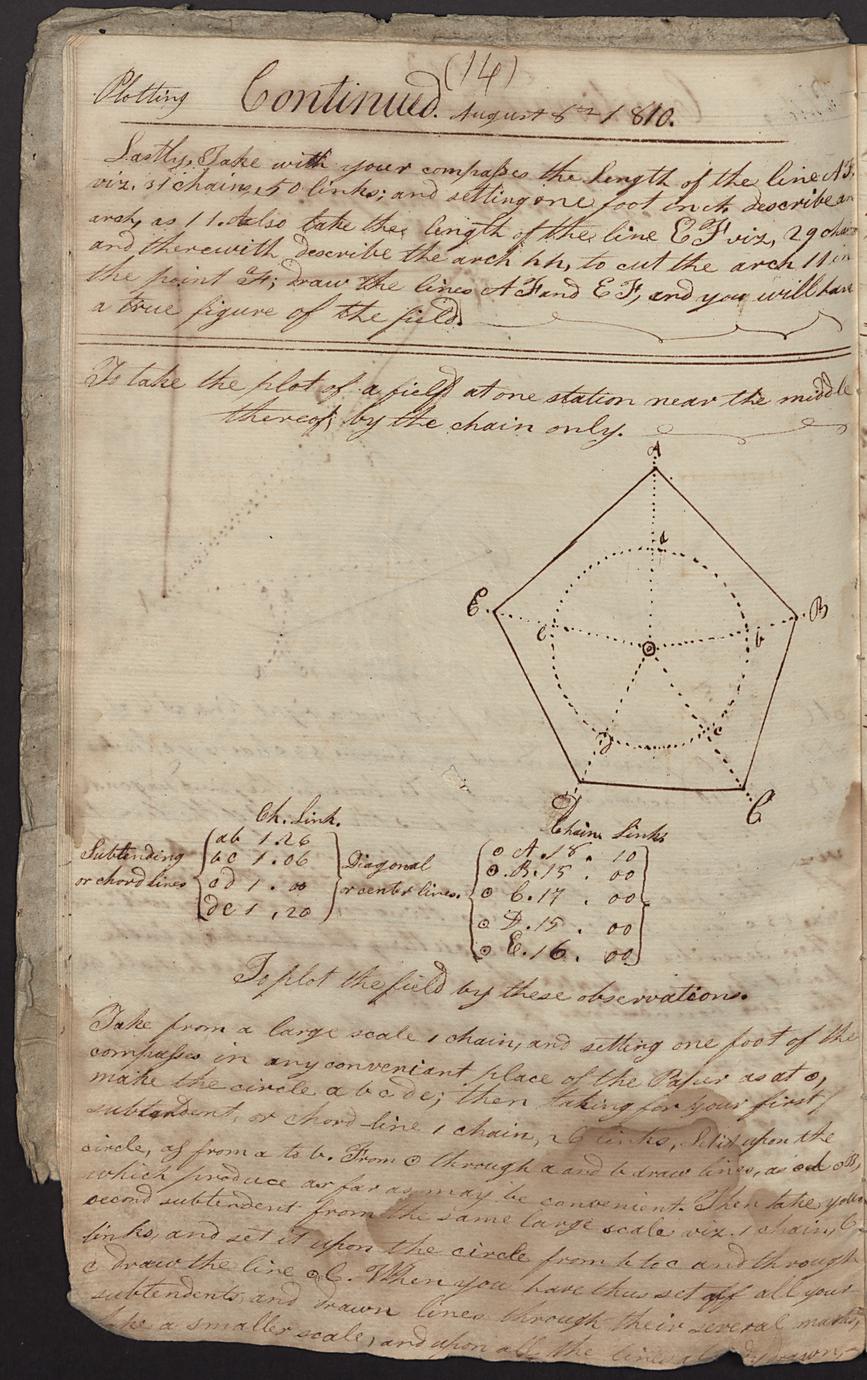 (14)
Plotting Continued. August 8th 1810.
Lastly, Take with your compasses the length of the line AF.
viz. 31 chains, 50 links; and setting one foot on A, describe an
arch, as 11. Also take the length of the line EF viz, 29 chains
and therewith describe the arch hh, to cut the arch 11 in
the point F; draw the lines AF and EF, and you will have
a true figure of the field.
To take the plot of a field at one station near the middle
thereof, by the chain only.
A
a
E
e
B
b
c
d
D
C
Ch. Link.
Subtending or chord lines
ab 1.26
bc 1.06
cd 1.00
de 1,20
Diagonal or center lines.
Chain Links
⊙ A.18. 10
⊙.B.15. 00
⊙ C.17. 00
⊙ D.15. 00
⊙ E.16. 00
To plot the field by these observations.
Take from a large scale 1 chain, and setting one foot of the
compasses in any conveniant place of the Paper as at ⊙,
make the circle a b c d e; then taking for your first
subtendent, or chord-line 1 chain, 26 links, set it upon the
circle, as from a to b. From ⊙ through a and b draw lines, as ⊙a ⊙B,
which produce as far as may be convenient. Then take your
second subtendent from the same large scale viz. 1 chain, 6
links, and set it upon the circle from b to c and through
c draw the line ⊙C. When you have thus set off all your
subtendents, and drawn lines through their several marks,
take a smaller scale, and upon all the lines already drawn,